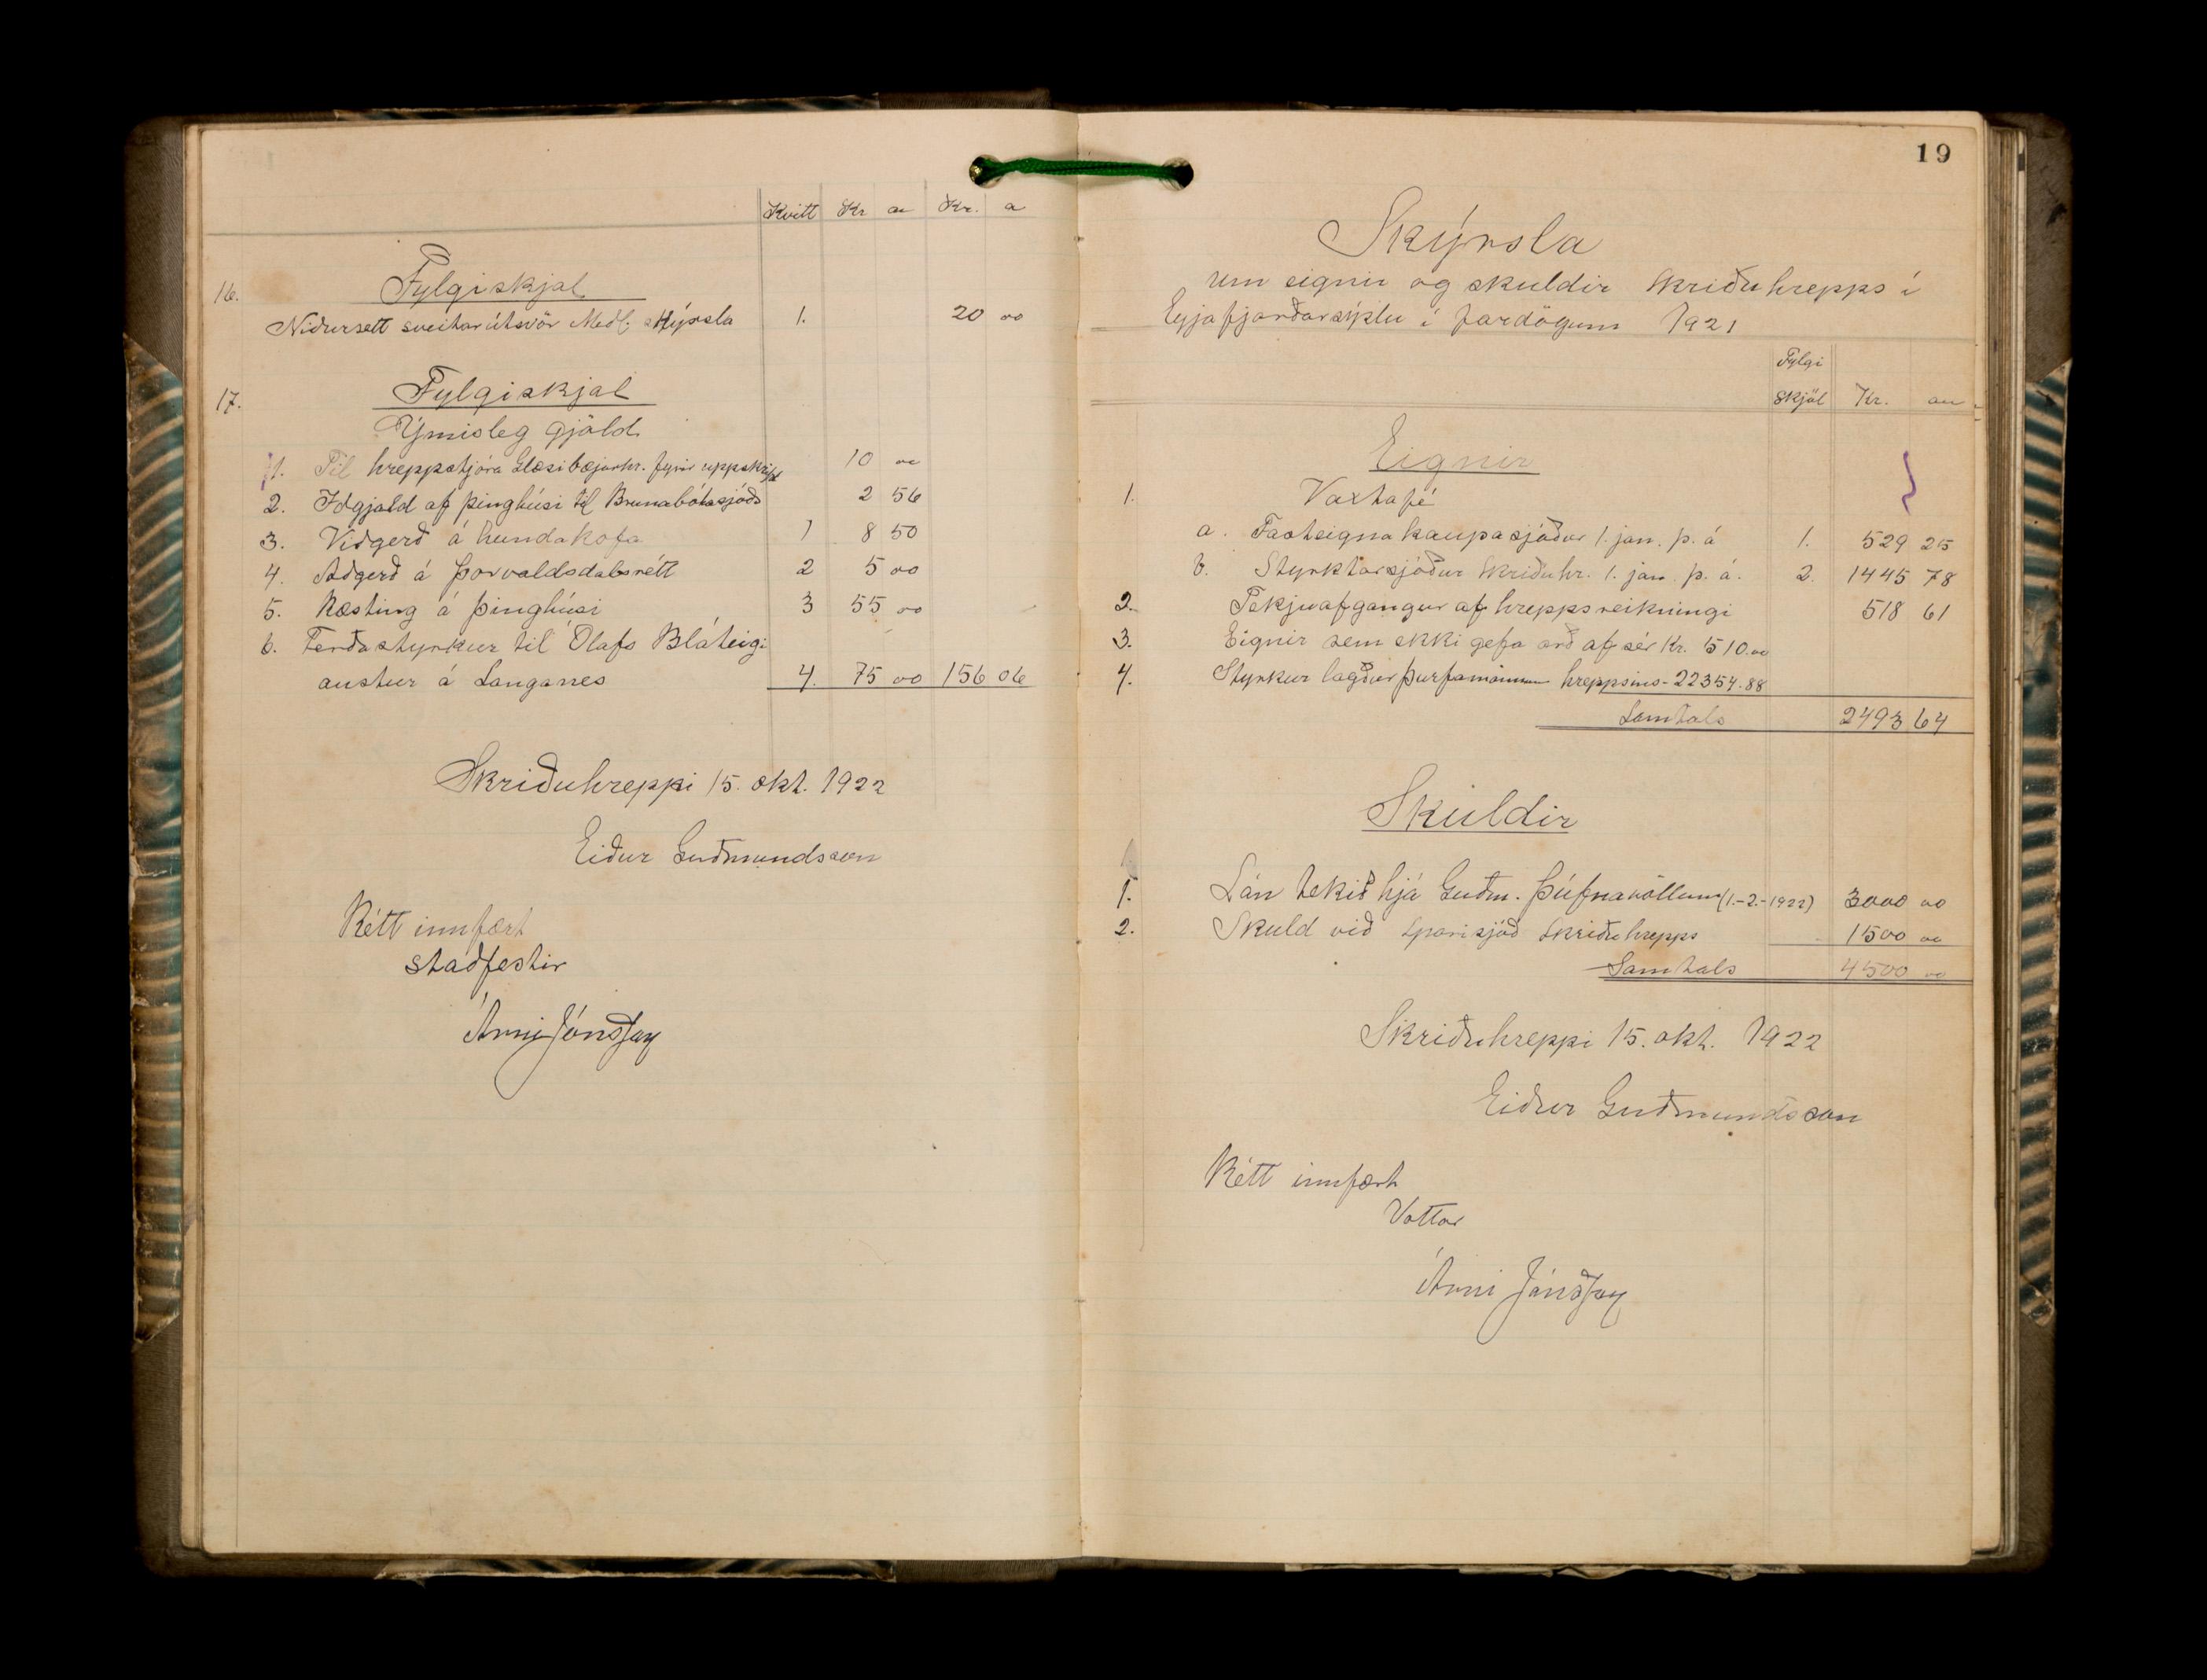 Kvitt Kr au Kr. a
16. Fylgiskjal
Niðursett sveitarútsvör Medl. skýrsla 1. 20 00
17. Fylgiskjal
Ýmisleg gjöld
1. Til hreppstjóra Glæsibæjarhr. fyrir uppskrift 10 00
2. Iðgjald af þinghúsi til Brunabótasjóðs 2 56
3. Viðgerð á hundakofa 1 8 50
4. Aðgerð á Þorvaldsdalsrétt 2 5 00
5. Ræsting á þinghúsi 3 55 00
6. Ferðastyrkur til Ólafs Bláteigi
austur á Langanes 4. 75 00 156 06
Skriðuhreppi 15. okt. 1922
Eiður Guðmundsson
Rétt innfært
staðfestir
Árni Jónsson
19
Skýrsla
um eignir og skuldir Skriðuhrepps í
Eyjafjarðarsýslu í fardögum 1921
Fylgi
skjöl Kr. au
Eignir
1. Vaxtafé
a. Fasteignakaupasjóður 1. jan. þ. á 1. 529 25
b. Styrktarsjóður Skriðuhr. 1. jan. þ. á. 2. 1445 78
2. Tekjuafgangur af hreppsreikningi 518 61
3. Eignir sem ekki gefa arð af sér Kr. 510.00
4. Styrkur lagður þurfamönnum hreppsins - 22354.88
Samtals 2493 64
Skuldir
1. Lán tekið hjá Guðm. Þúfnavöllum (1.-2.-1922) 3000 00
2. Skuld við Sparisjóð Skriðuhrepps 1500 00
Samtals 4500 00
Skriðuhreppi 15. okt. 1922
Eiður Guðmundsson
Rétt innfært
Vottar
Árni Jónsson